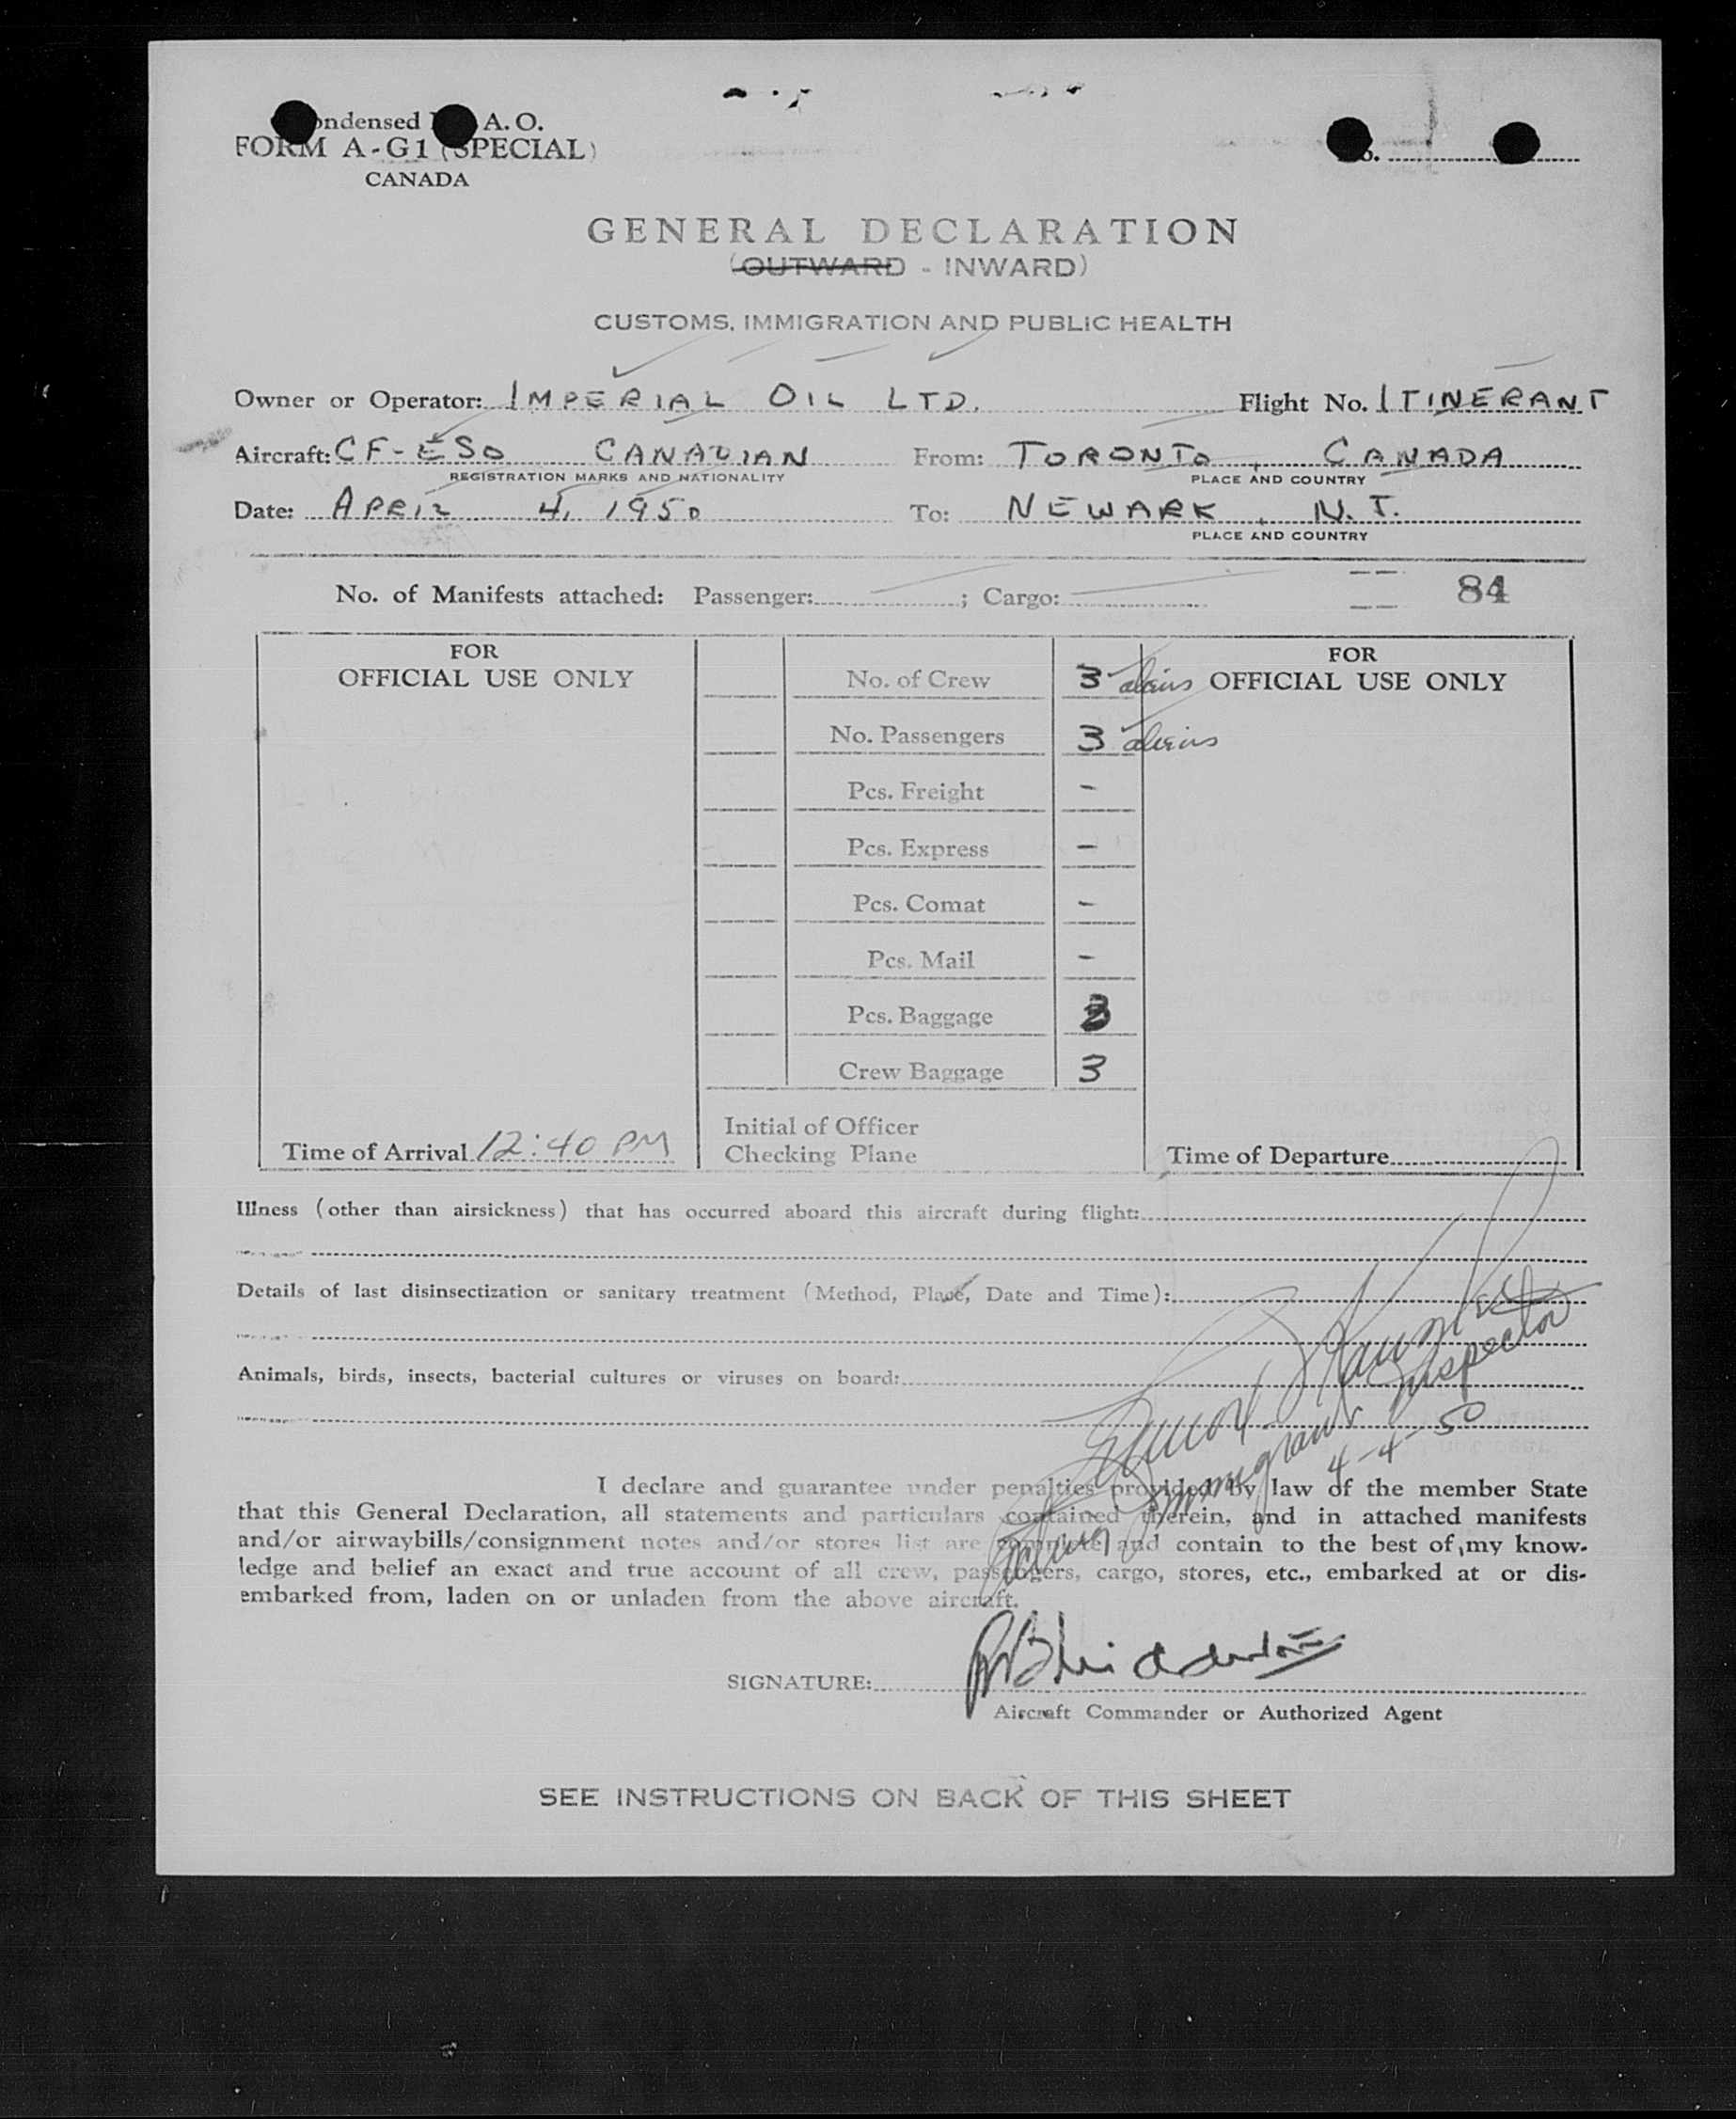 ondensed A. O.
FORM A-G1 (SPECIAL)
CANADA
GENERAL DECLARATION
(OUTWARD - INWARD)
CUSTOMS, IMMIGRATION AND PUBLIC HEALTH
Owner or Operator: IMPERIAL OIL LTD. Flight No. ITINERANT
Aircraft: CF-ESO CANADIAN From: TORONTO, CANADA
REGISTRATION MARKS AND NATIONALITY PLACE AND COUNTRY
Date: APRIL 4, 1950 To: NEWARK, N.J.
PLACE AND COUNTRY
No. of Manifests attached: Passenger: ; Cargo: 84
FOR
OFFICIAL USE ONLY
No. of Crew 3 aliens
No. Passengers 3 aliens
Pcs. Freight -
Pcs. Express -
Pcs. Comat -
Pcs. Mail -
Pcs. Baggage 3
Crew Baggage 3
FOR
OFFICIAL USE ONLY
Time of Arrival 12:40 PM
Initial of Officer
Checking Plane
Time of Departure
Illness (other than airsickness) that has occurred aboard this aircraft during flight:
Details of last disinsectization or sanitary treatment (Method, Place, Date and Time):
Animals, birds, insects, bacterial cultures or viruses on board:
Immigrant Inspector
4-4-50
I declare and guarantee under penalties provided by law of the member State
that this General Declaration, all statements and particulars contained therein, and in attached manifests
and/or airwaybills/consignment notes and/or stores list are complete and contain to the best of my know-
ledge and belief an exact and true account of all crew, passengers, cargo, stores, etc., embarked at or dis-
embarked from, laden on or unladen from the above aircraft.
SIGNATURE:
Aircraft Commander or Authorized Agent
SEE INSTRUCTIONS ON BACK OF THIS SHEET